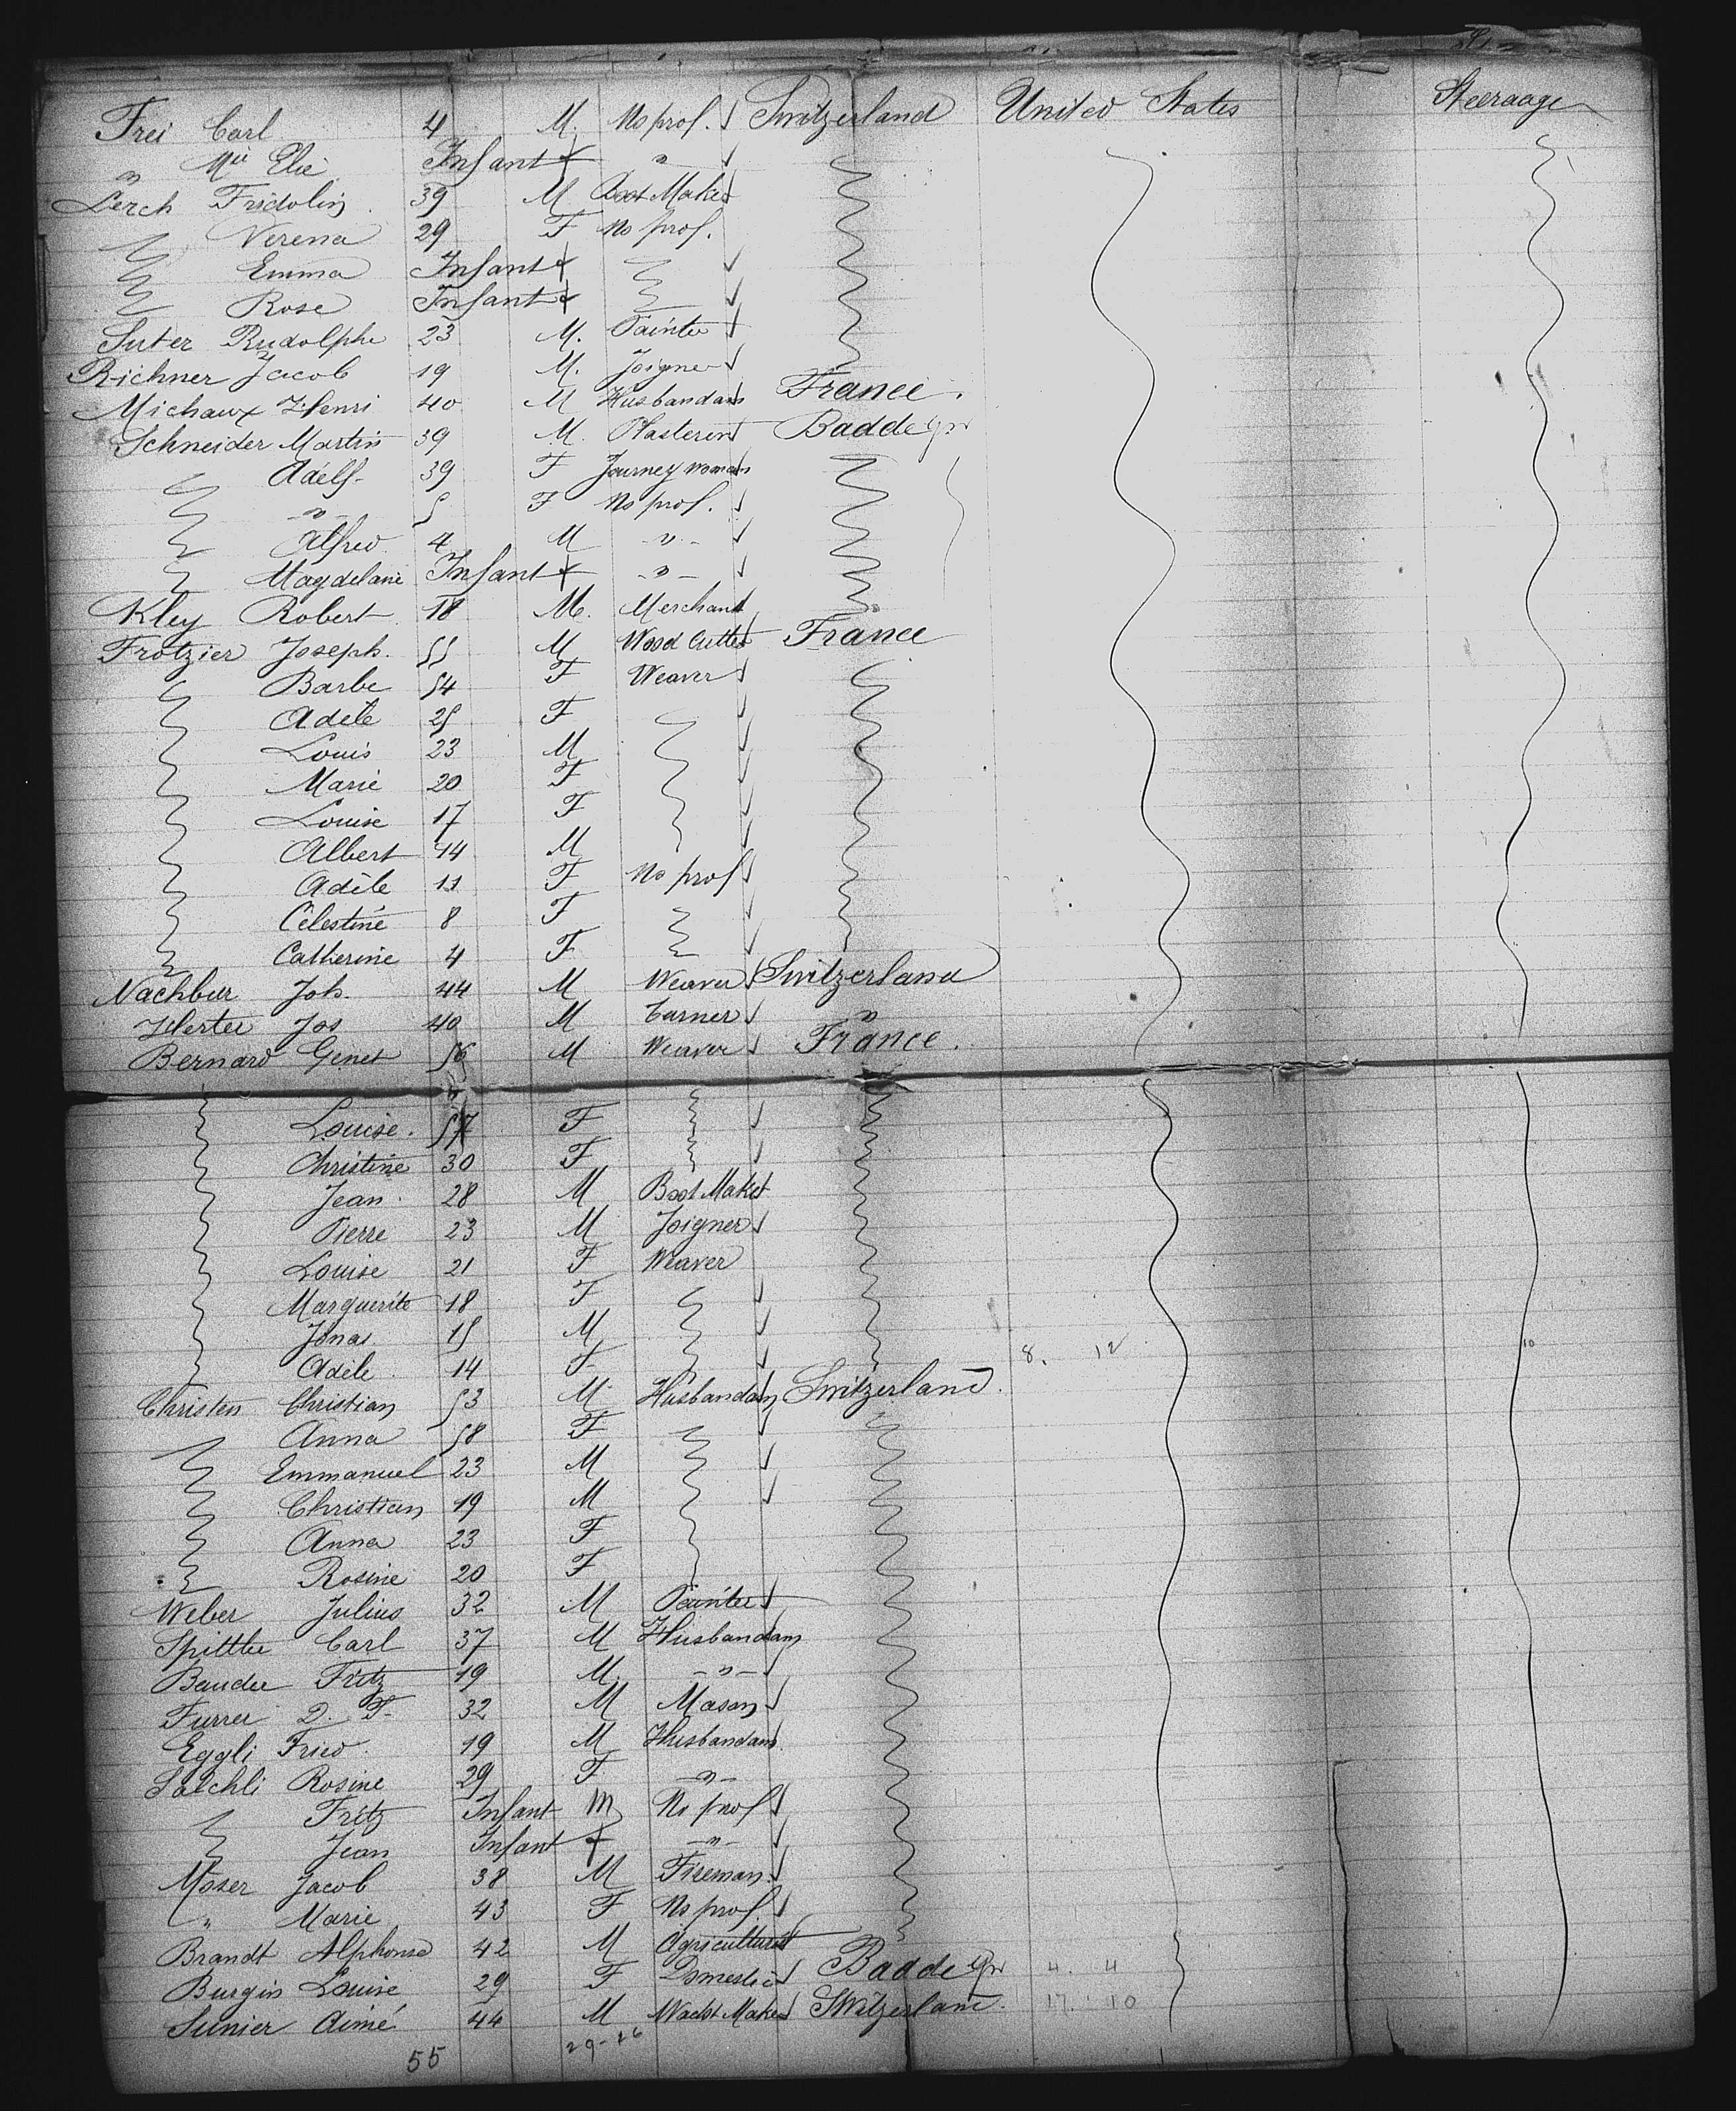 Frei Carl 4 M. No prof. Switzerland United States Steeraage
" Mie Elie Infant f "
Lerch Fridolin 39 M Boot Maker
Verena 29 F No prof.
Emma Infant f
Rose Infant f
Suter Rudolphe 23 M. Painter
Richner Jacob 19 M. Joigner
Michaux Henri 40 M Husbandam France.
Schneider Martin 39 M. Plasterer Badde Gr
Adelf. 39 F Journey woman
-"- 5 F No prof.
Alfred 4 M -"-
Magdelane Infant f -"-
Kley Robert 18 M. Merchant
Frotzier Joseph. 55 M Wood Cutter France
Barbe 54 F Weaver
Adèle 25 F
Louis 23 M
Marie 20 F
Louise 17 F
Albert 14 M
Adèle 11 F No prof
Célestine 8 F
Catherine 4 F
Nachbur Joh. 44 M Weaver Switzerland
Herter Jos 40 M Turner "
Bernard Genet 56 M Weaver France.
Louise. 57 F
Christine 30 F
Jean. 28 M Boot Maker
Pierre 23 M Joigner
Louise 21 F Weaver
Marguerite 18 F
Jonas 15 M
Adèle. 14 F 8. 12 10
Christen Christian 53 M. Husbandam Switzerland.
Anna 58 F
Emmanuel 23 M
Christian 19 M
Anna 23 F
Rosine 20 F
Weber Julius 32 M Painter
Spittler Carl 37 M Husbandam
Bauder Fritz 19 M. -"-
Furrer D. F. 32 M Mason
Eggli Fried. 19 M Husbandam
Salchli Rosine 29 F -"-
Fritz Infant M No prof
Jean Infant f -"-
Moser Jacob 38 M Fireman.
" Marie 43 F No prof
Brandt Alphonse 42 M Agriculturist
Burgin Louise 29 F Domestic Badde Gr 4. 4
Sunier Aimé 44 M Wacht Maker Switzerland. 17. 10
55 29-26